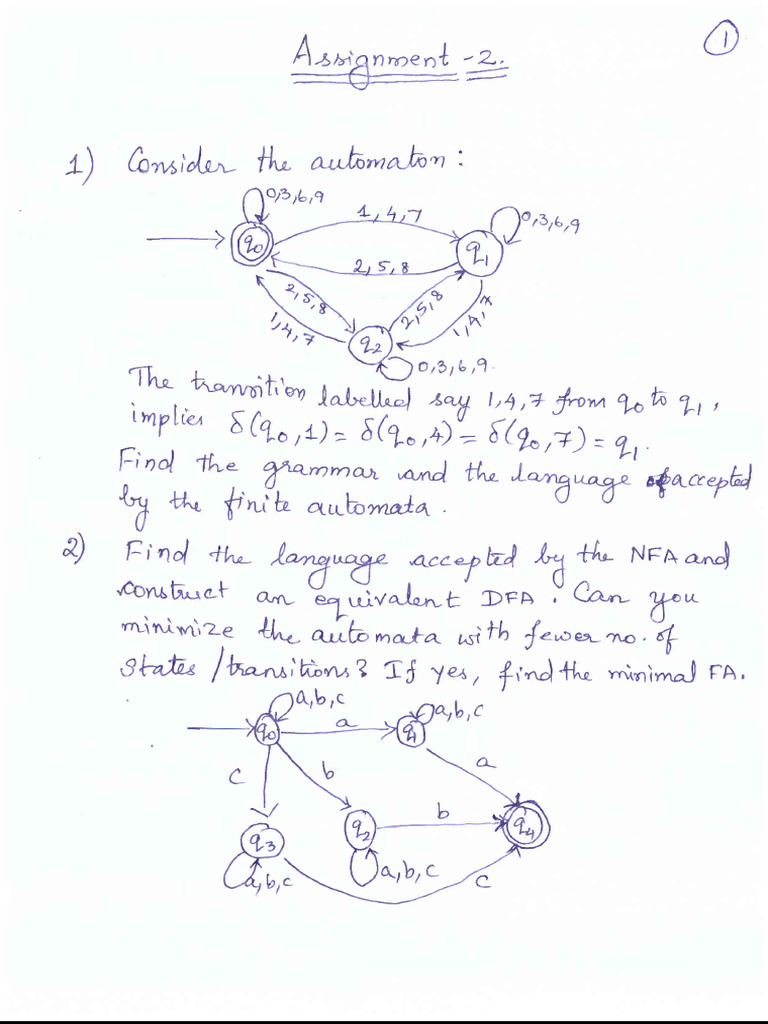 1
Assignment -2.
1) Consider the automaton:
0,3,6,9
1,4,7
0,3,6,9
q0
q1
2,5,8
2,5,8
2,5,8
1,4,7
1,4,7
q2
0,3,6,9.
The transition labelled say 1,4,7 from q0 to q1,
implies δ(q0,1) = δ(q0,4) = δ(q0,7) = q1.
Find the grammar and the language accepted
by the finite automata.
2) Find the language accepted by the NFA and
construct an equivalent DFA. Can you
minimize the automata with fewer no. of
states /transitions? If yes, find the minimal FA.
a,b,c
a,b,c
q0
a
q1
c
b
a
b
q3
q2
q4
a,b,c
a,b,c
c